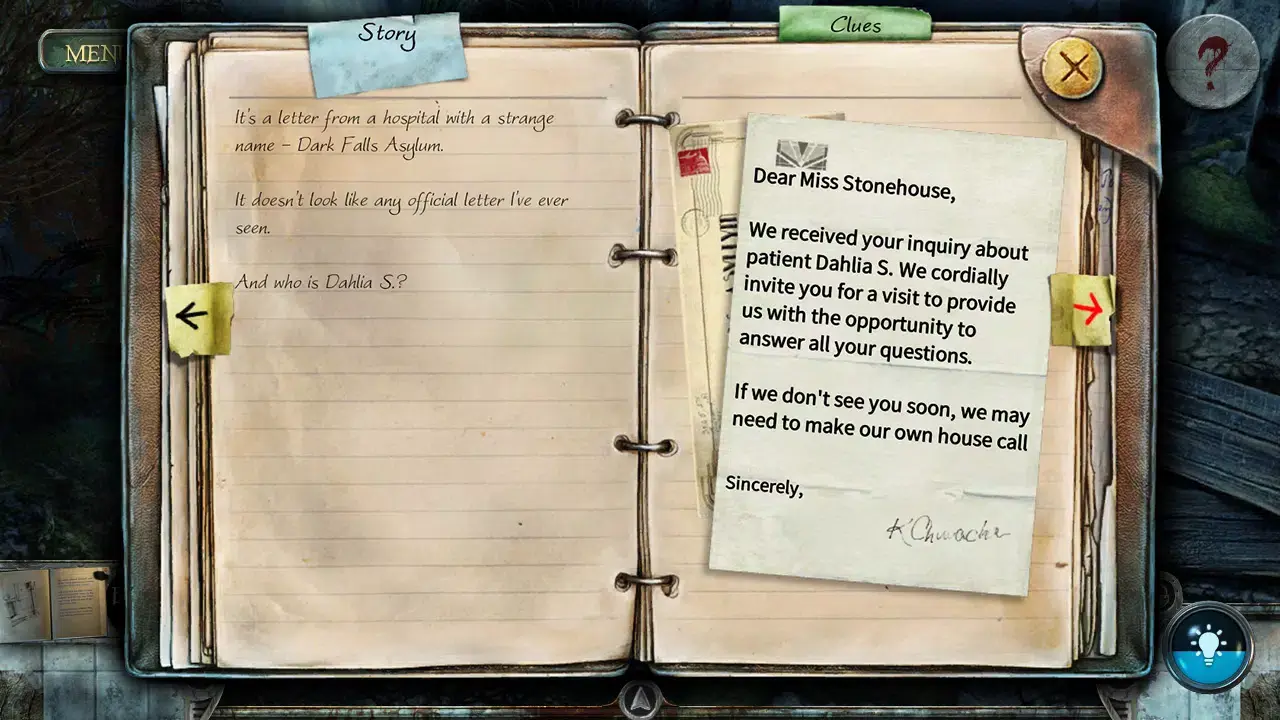 MEN
Story
Clues
It's a letter from a hospital with a strange
name – Dark Falls Asylum.
It doesn't look like any official letter I've ever
seen.
And who is Dahlia S.?
Dear Miss Stonehouse,
We received your inquiry about
patient Dahlia S. We cordially
invite you for a visit to provide
us with the opportunity to
answer all your questions.
If we don't see you soon, we may
need to make our own house call
Sincerely,
?